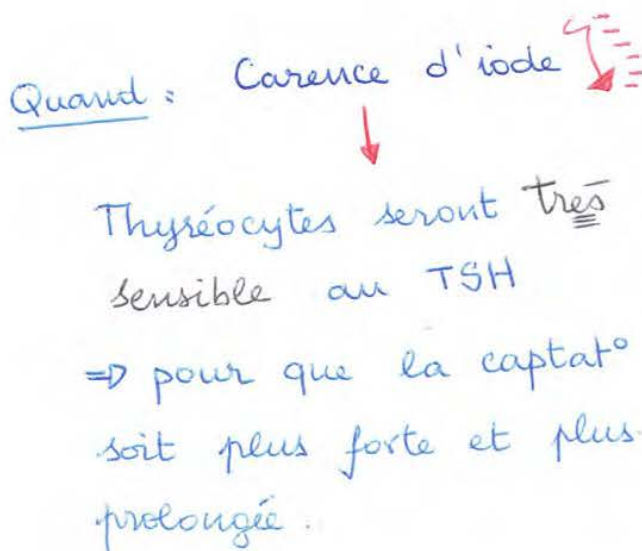 Quand : Carence d'iode
Thyréocytes seront très
sensible au TSH
=> pour que la captat°
soit plus forte et plus
prolongée.